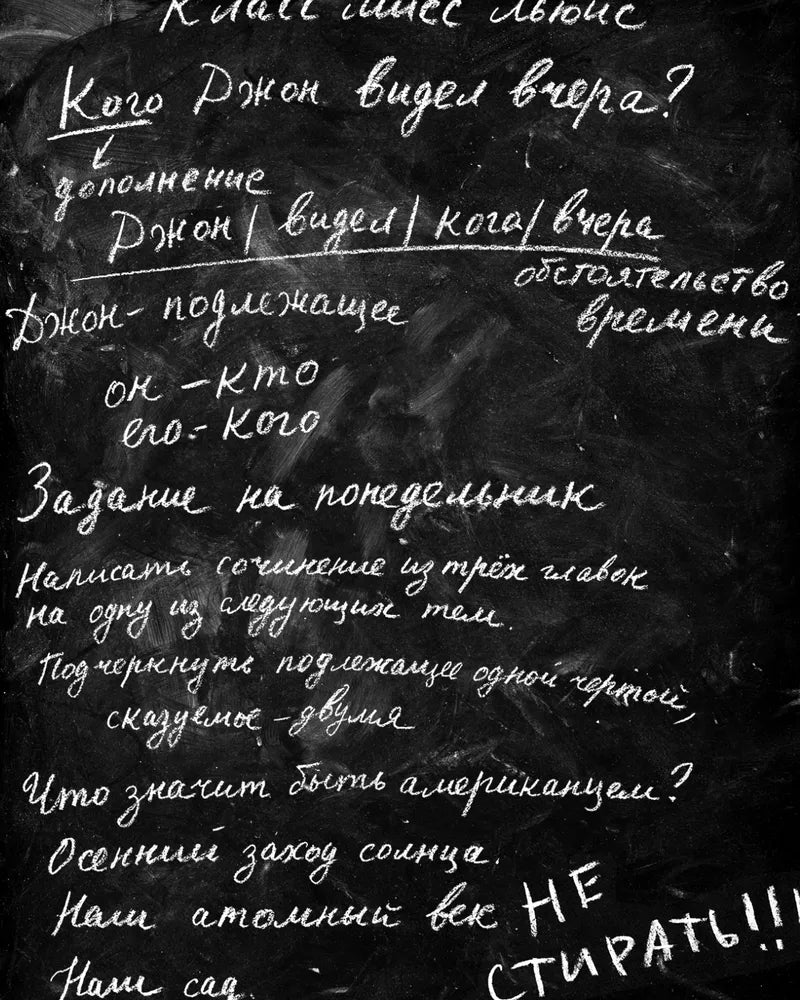 Класс мисс Льюис
Кого Джон видел вчера?
дополнение
Джон / видел / кога / вчера
обстоятельство
времени
Джон - подлежащее
он - кто
его - кого
Задание на понедельник
Написать сочинение из трёх главок
на одну из следующих тем.
Подчеркнуть подлежащее одной чертой,
сказуемое - двумя
Что значит быть американцем?
Осенний заход солнца.
Наш атомный век
НЕ
СТИРАТЬ!!!
Наш сад